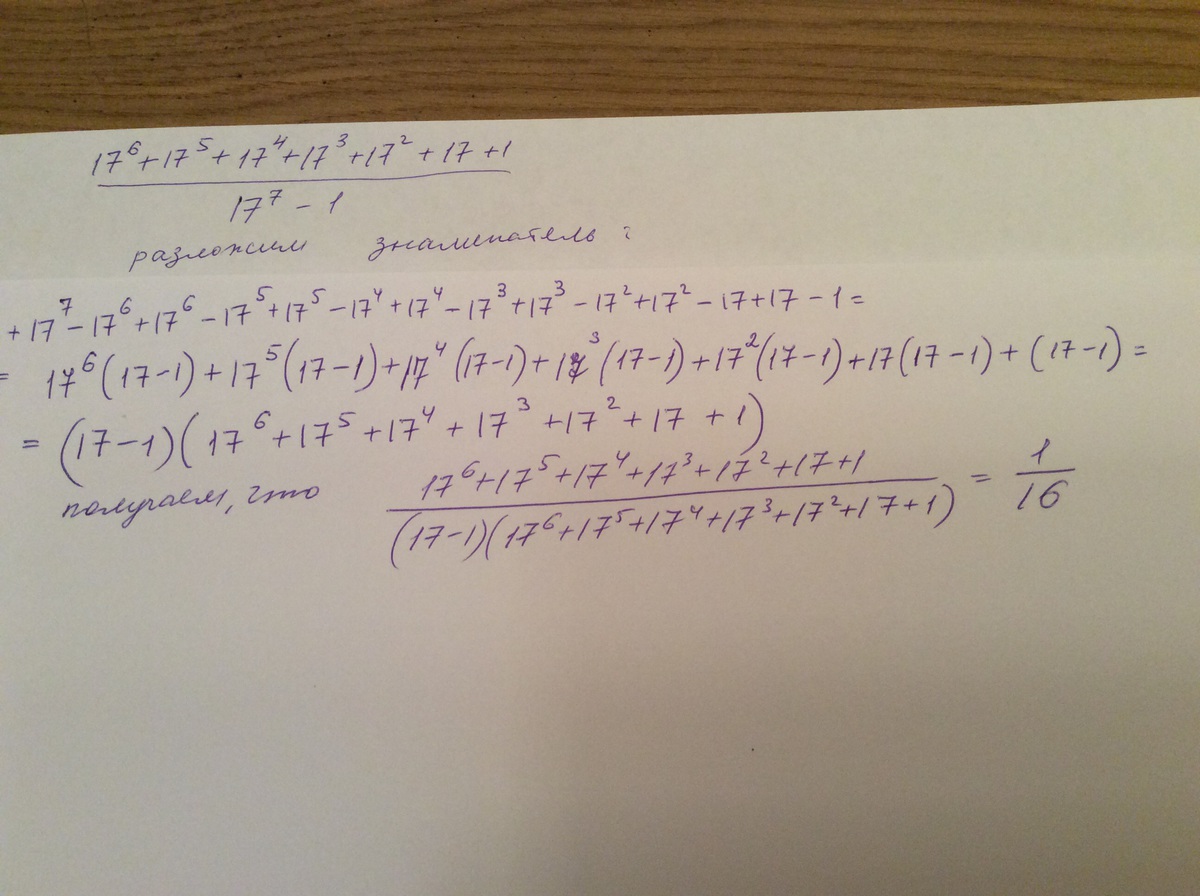 17⁶+17⁵+17⁴+17³+17²+17+1
17⁷-1
разложим знаменатель:
+17⁷-17⁶+17⁶-17⁵+17⁵-17⁴+17⁴-17³+17³-17²+17²-17+17-1=
= 17⁶(17-1)+17⁵(17-1)+17⁴(17-1)+17³(17-1)+17²(17-1)+17(17-1)+(17-1)=
= (17-1)(17⁶+17⁵+17⁴+17³+17²+17+1)
получаем, что 17⁶+17⁵+17⁴+17³+17²+17+1 / (17-1)(17⁶+17⁵+17⁴+17³+17²+17+1) = 1/16